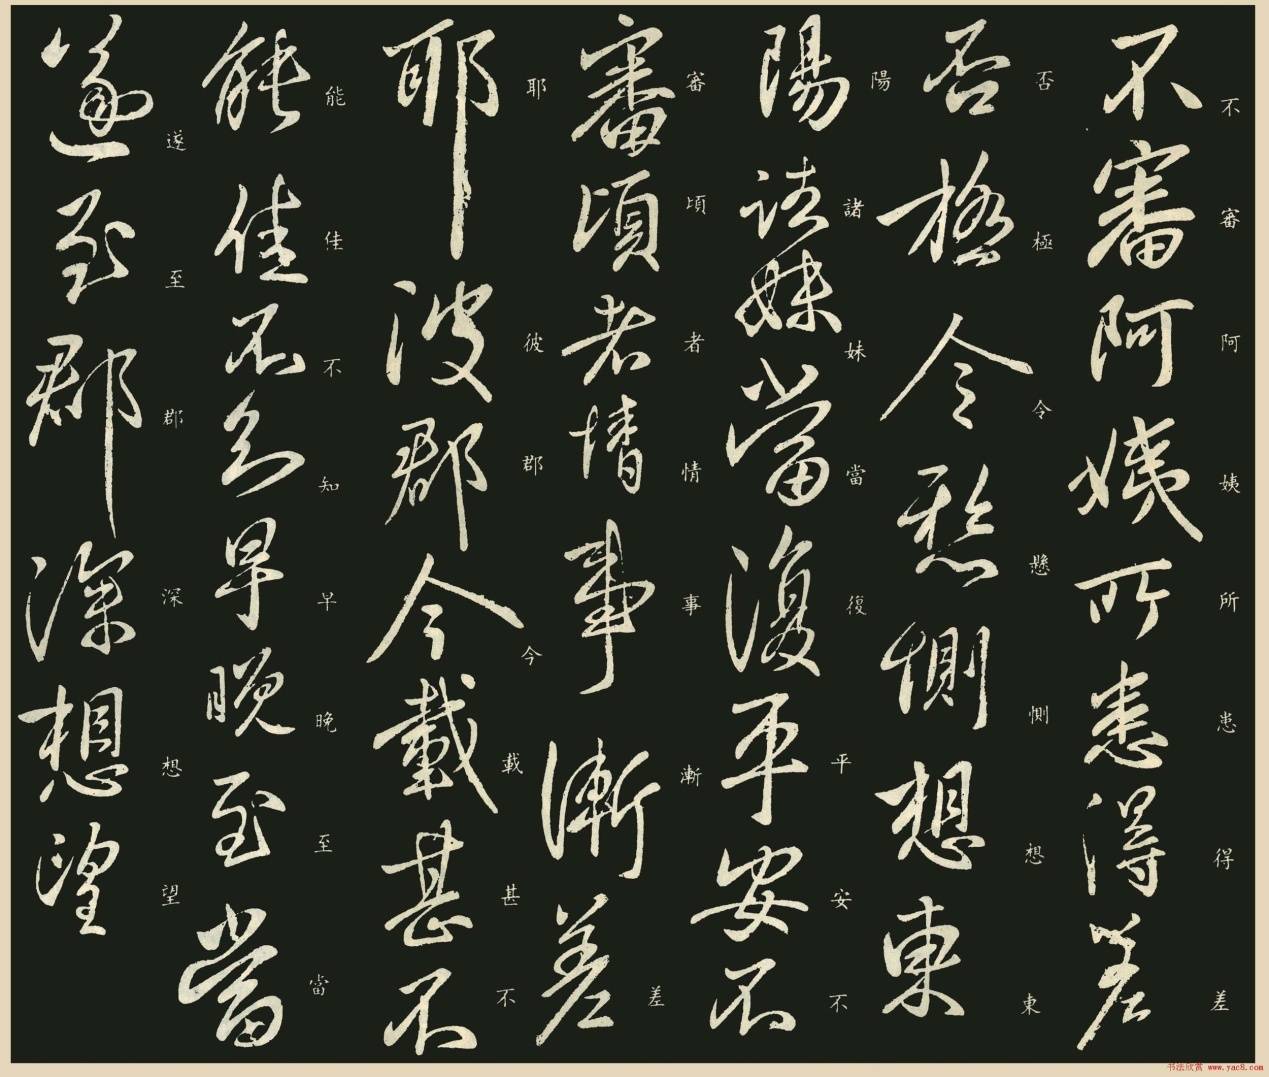 不審阿姨所患得差
否極令懸惻想東
陽諸妹當復平安不
審頃者情事漸差
耶彼郡今載甚不
能佳不知早晚至當
遂至郡深想望
不審阿姨所患得差
否極令懸惻想東
陽諸妹當復平安不
審頃者情事漸差
耶彼郡今載甚不
能佳不知早晚至當
遂至郡深想望
书法欣赏 www.yac8.com